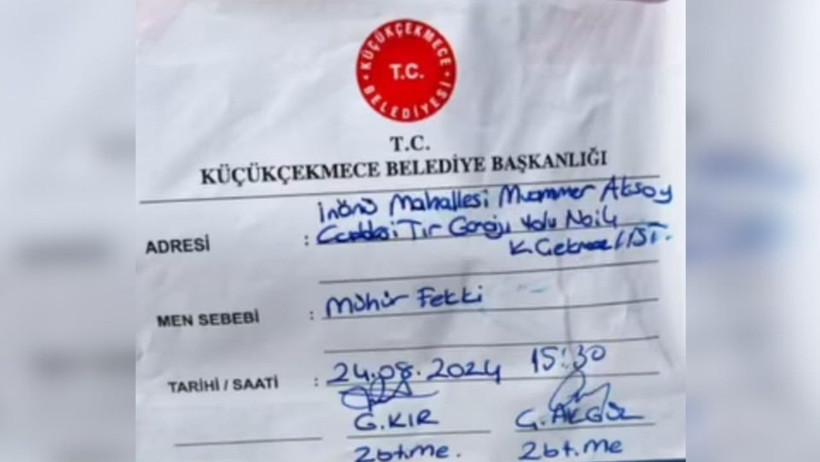 KÜÇÜKÇEKMECE
T.C.
BELEDİYESİ
T.C.
KÜÇÜKÇEKMECE BELEDİYE BAŞKANLIĞI
İnönü Mahallesi Muammer Aksoy
ADRESİ : Caddesi Tır Garajı Yolu No:4
K.Çekmece/İST.
MEN SEBEBİ : Mühür Fekki
TARİHİ / SAATİ : 24.08.2024 15:30
G.KIR G.AKGÜL
Zbt.me. Zbt.me